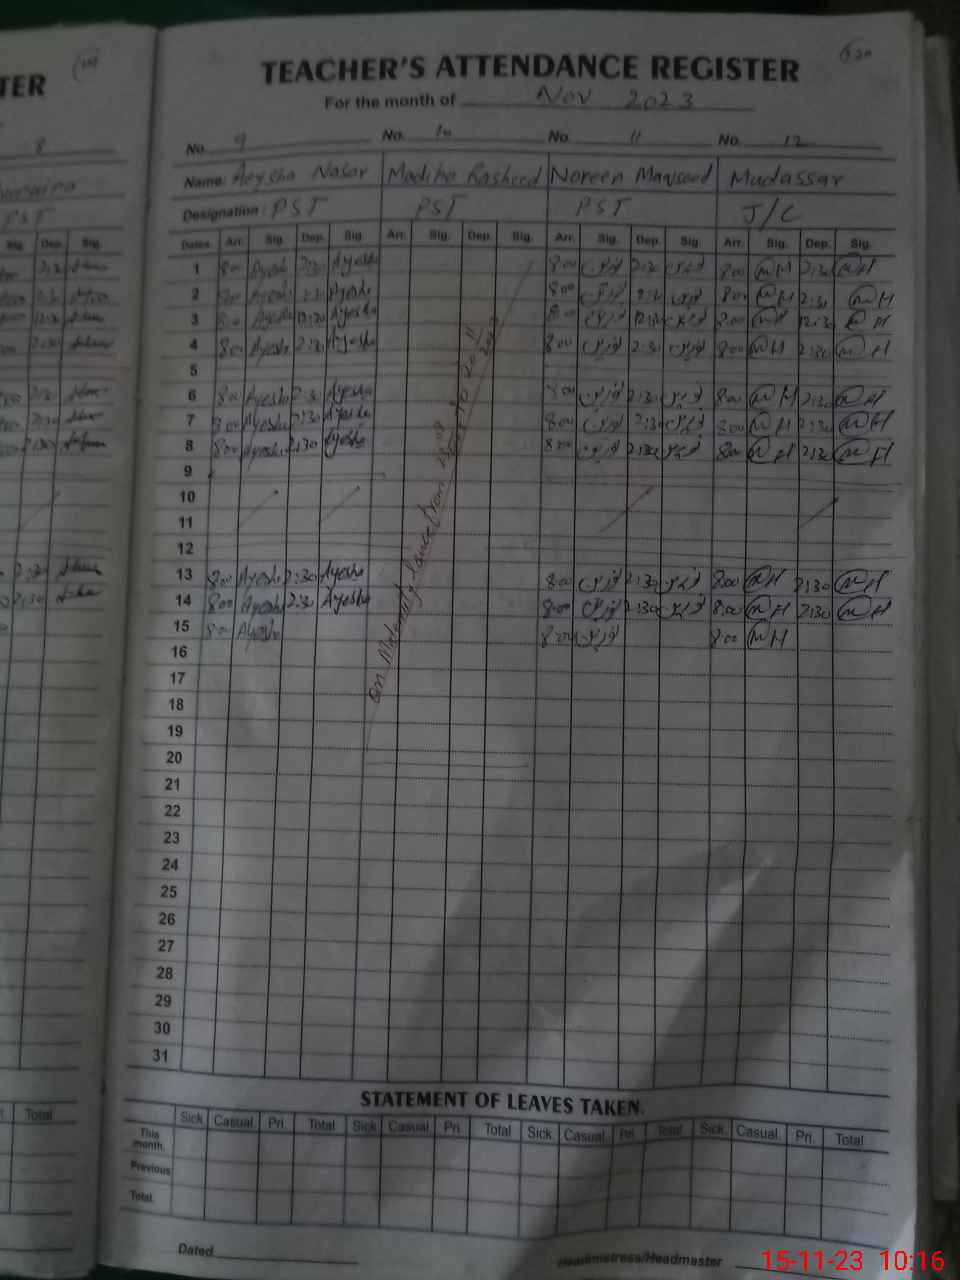 TER
TEACHER'S ATTENDANCE REGISTER
For the month of Nov 2023
8
No. 9 No. 10 No. 11 No. 12
Name: Aeysha Nasar Madiha Rasheed Noreen Maqsood Mudassar
PST
Designation: PST PST PST J/C
Sig. Dep. Sig.
Dates Arr. Sig. Dep. Sig. Arr. Sig. Dep. Sig. Arr. Sig. Dep. Sig. Arr. Sig. Dep. Sig.
1 8:00 Ayesha 2:30 Ayesha 8:00 2:30 8:00 MH 2:30 MH
2 8:00 Ayesha 2:30 Ayesha 8:00 2:30 8:00 MH 2:30 MH
3 8:00 Ayesha 12:30 Ayesha 8:00 12:30 8:00 MH 12:30 MH
4 8:00 Ayesha 2:30 Ayesha 8:00 2:30 8:00 MH 2:30 MH
5
6 8:00 Ayesha 2:30 Ayesha 8:00 2:30 8:00 MH 2:30 MH
7 8:00 Ayesha 2:30 Ayesha 8:00 2:30 8:00 MH 2:30 MH
8 8:00 Ayesha 2:30 Ayesha 8:00 2:30 8:00 MH 2:30 MH
9
10
11
12
13 8:00 Ayesha 2:30 Ayesha 8:00 2:30 8:00 MH 2:30 MH
14 8:00 Ayesha 2:30 Ayesha 8:00 2:30 8:00 MH 2:30 MH
15 8:00 Ayesha 8:00 8:00 MH
on Maternity
16
17
18
19
20
21
22
23
24
25
26
27
28
29
30
31
STATEMENT OF LEAVES TAKEN.
Total
Sick. Casual. Pri. Total Sick. Casual. Pri. Total Sick. Casual. Pri. Total Sick. Casual. Pri. Total
This month.
Previous
Total.
Dated
Headmistress/Headmaster
15-11-23 10:16